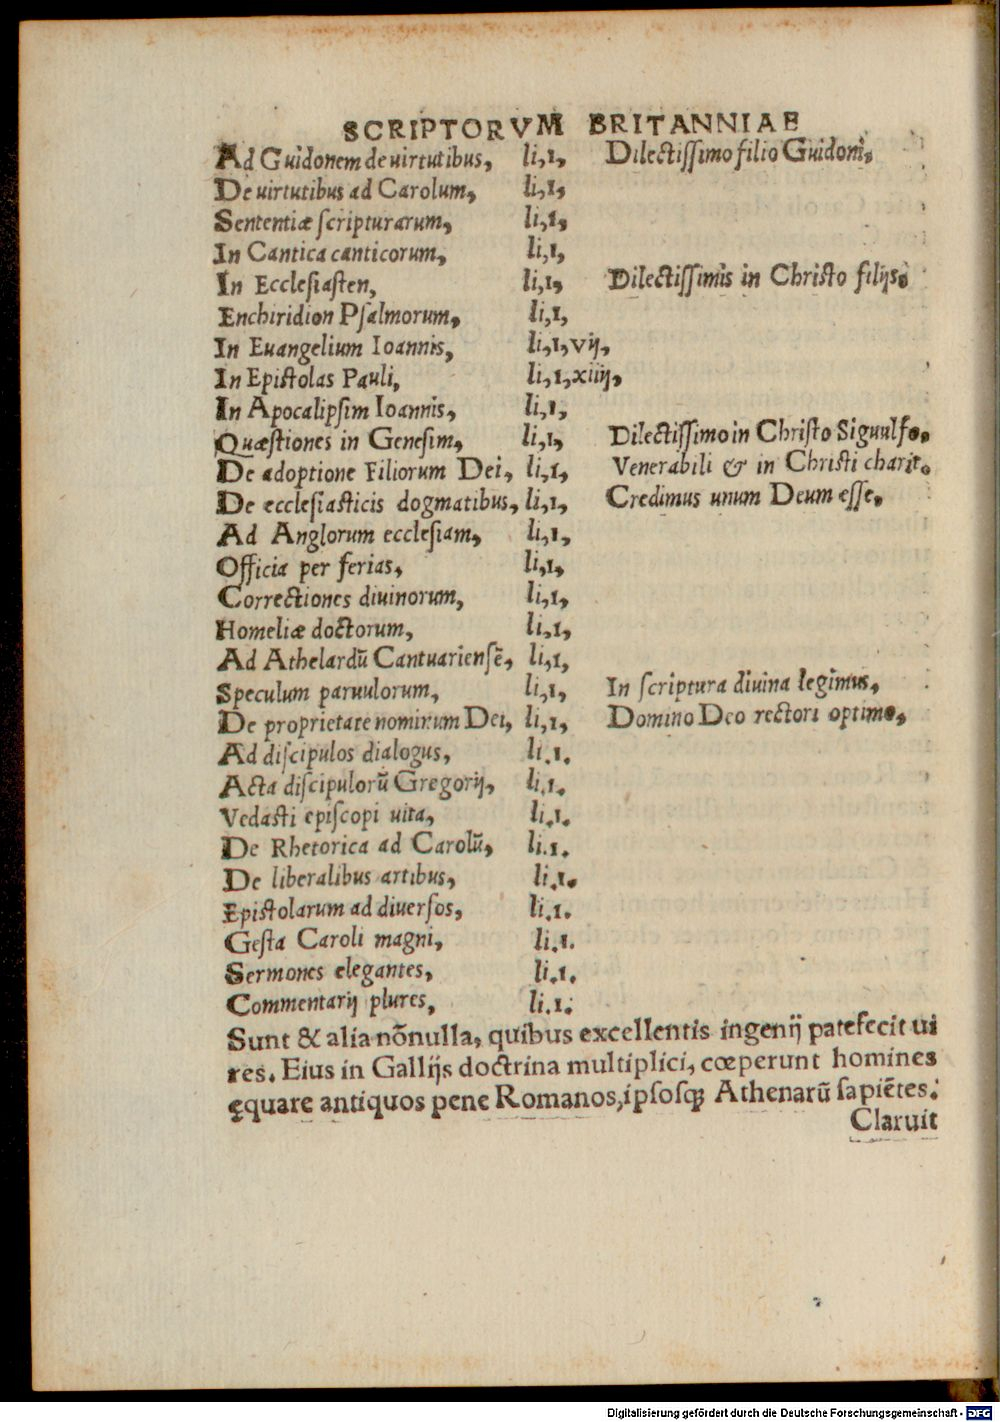 SCRIPTORVM BRITANNIAE
Ad Guidonem de uirtutibus, li,1, Dilectissimo filio Guidoni,
De uirtutibus ad Carolum, li,1,
Sententiæ scripturarum, li,1,
In Cantica canticorum, li,1,
In Ecclesiasten, li,1, Dilectissimis in Christo filijs.
Enchiridion Psalmorum, li,1,
In Euangelium Ioannis, li,1,vij,
In Epistolas Pauli, li,1,xiiij,
In Apocalipsim Ioannis, li,1,
Quæstiones in Genesim, li,1, Dilectissimo in Christo Siguulfo,
De adoptione Filiorum Dei, li,1, Venerabili & in Christi charit.
De ecclesiasticis dogmatibus, li,1, Credimus unum Deum esse,
Ad Anglorum ecclesiam, li,1,
Officia per ferias, li,1,
Correctiones diuinorum, li,1,
Homeliæ doctorum, li,1,
Ad Athelardū Cantuariensē, li,1,
Speculum paruulorum, li,1, In scriptura diuina legimus,
De proprietate nominum Dei, li,1, Domino Deo rectori optimo,
Ad discipulos dialogus, li.1.
Acta discipulorū Gregorij, li.1.
Vedasti episcopi uita, li.1.
De Rhetorica ad Carolū, li.1.
De liberalibus artibus, li.1.
Epistolarum ad diuersos, li.1.
Gesta Caroli magni, li.1.
Sermones elegantes, li.1.
Commentarij plures, li.1.
Sunt & alia nōnulla, quibus excellentis ingenij patefecit ui
res. Eius in Gallijs doctrina multiplici, cœperunt homines
ęquare antiquos pene Romanos, ipsosqꝫ Athenarū sapiētes.
Claruit
Digitalisierung gefördert durch die Deutsche Forschungsgemeinschaft - DFG